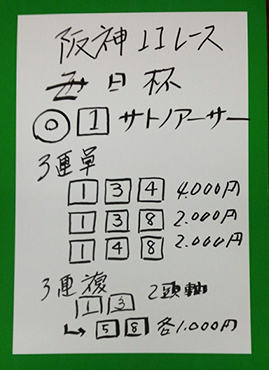 阪神11レース
毎日杯
◎ 1 サトノアーサー
3連単
1 3 4 4,000円
1 3 8 2,000円
1 4 8 2,000円
3連複
1 3 2頭軸
↳ 5 8 各1,000円